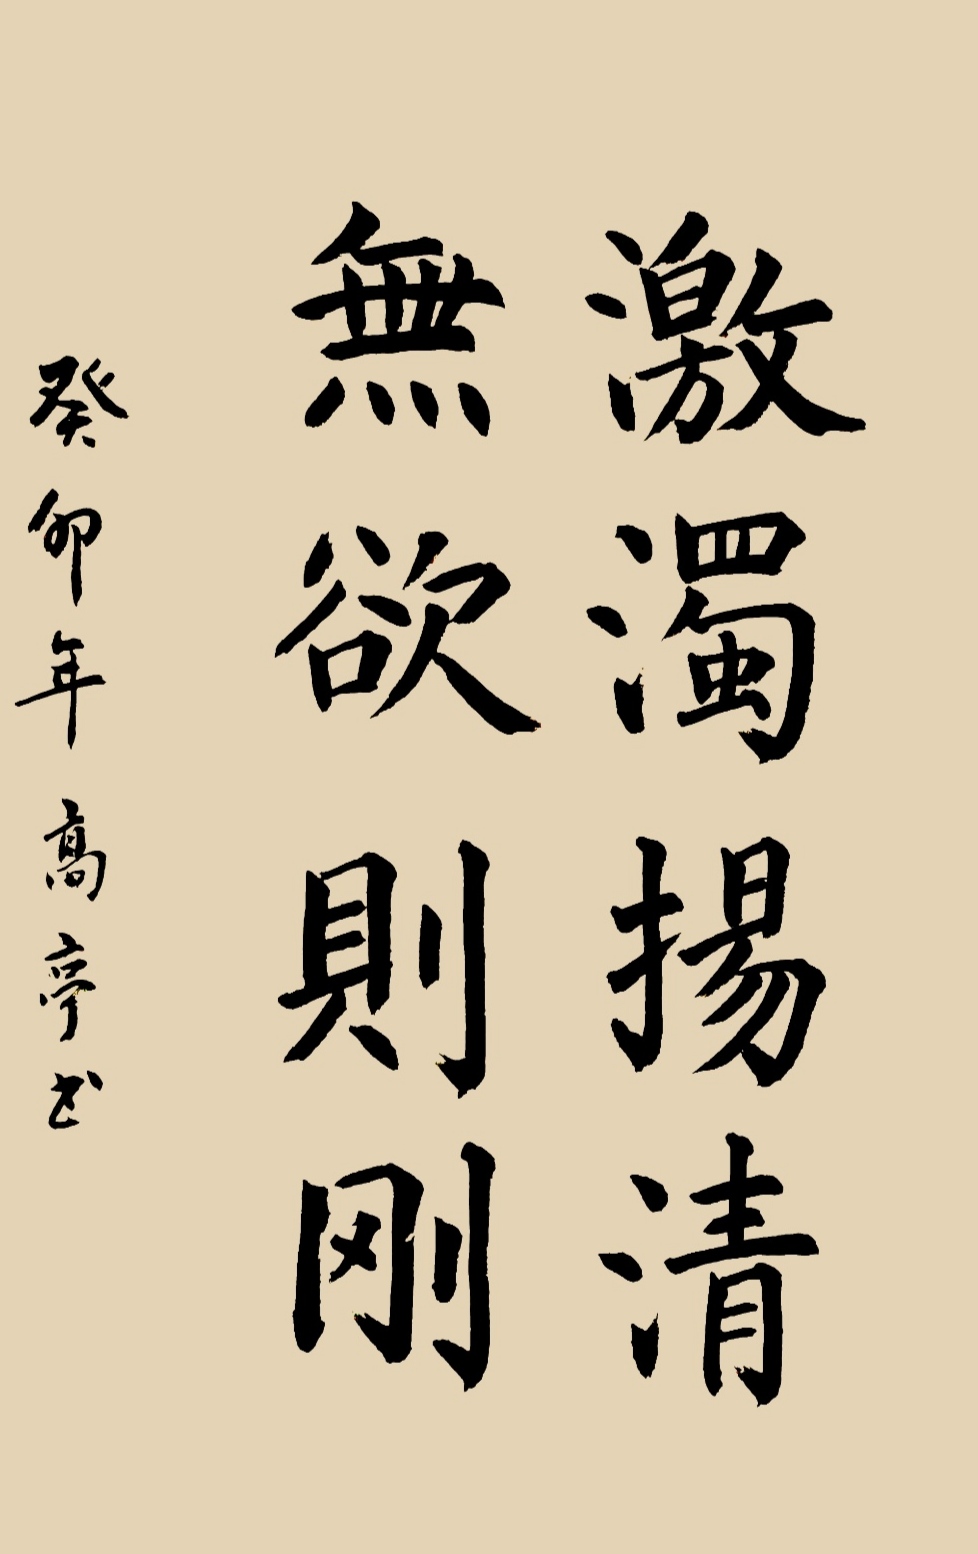 激濁揚清
無欲則刚
癸卯年高亭书